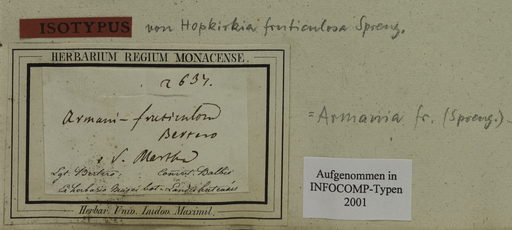 ISOTYPUS von Hopkirkia fruticulosa Spreng.
HERBARIUM REGIUM MONACENSE.
2637.
Armani- fruticulosa
Bertero
S. Martha
= Armania fr. (Spreng.)
Lgt. Bertero. Comm. Balbis
Ex herbario Musei bot. Landishutensis
Herbar. Univ. Ludov. Maximil.
Aufgenommen in
INFOCOMP-Typen
2001